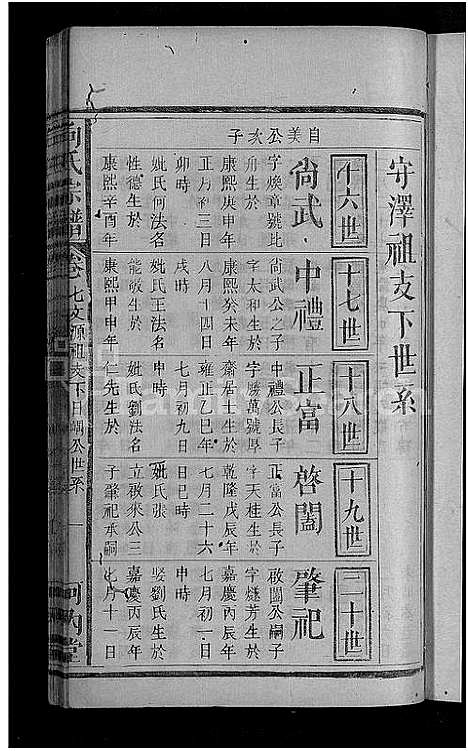 守澤祖支下世系
自美公次子
十六世
尙武
字煥章號比
舟生於
康熙庚申年
正月初三日
卯時
妣氏何法名
性德生於
康熙辛酉年
十七世
中禮
尙武公之子
字太和生於
康熙癸未年
八月十四日
戌時
妣氏王法名
能敏生於
康熙甲申年
十八世
正富
中禮公長子
字勝萬號厚
齋居士生於
雍正乙巳年
七月初九日
申時
妣氏劉法名
仁先生於
十九世
啓闔
正富公長子
字天桂生於
乾隆戊辰年
七月二十六
日巳時
妣氏張
立啟來公三
子肇祀承嗣
二十世
肇祀
啟闔公嗣子
字燧芳生於
嘉慶丙辰年
七月初一日
申時
娶劉氏生於
嘉慶丙辰年
七月十一日
向氏宗譜
卷七文源祖支下日公世系
一
河內堂